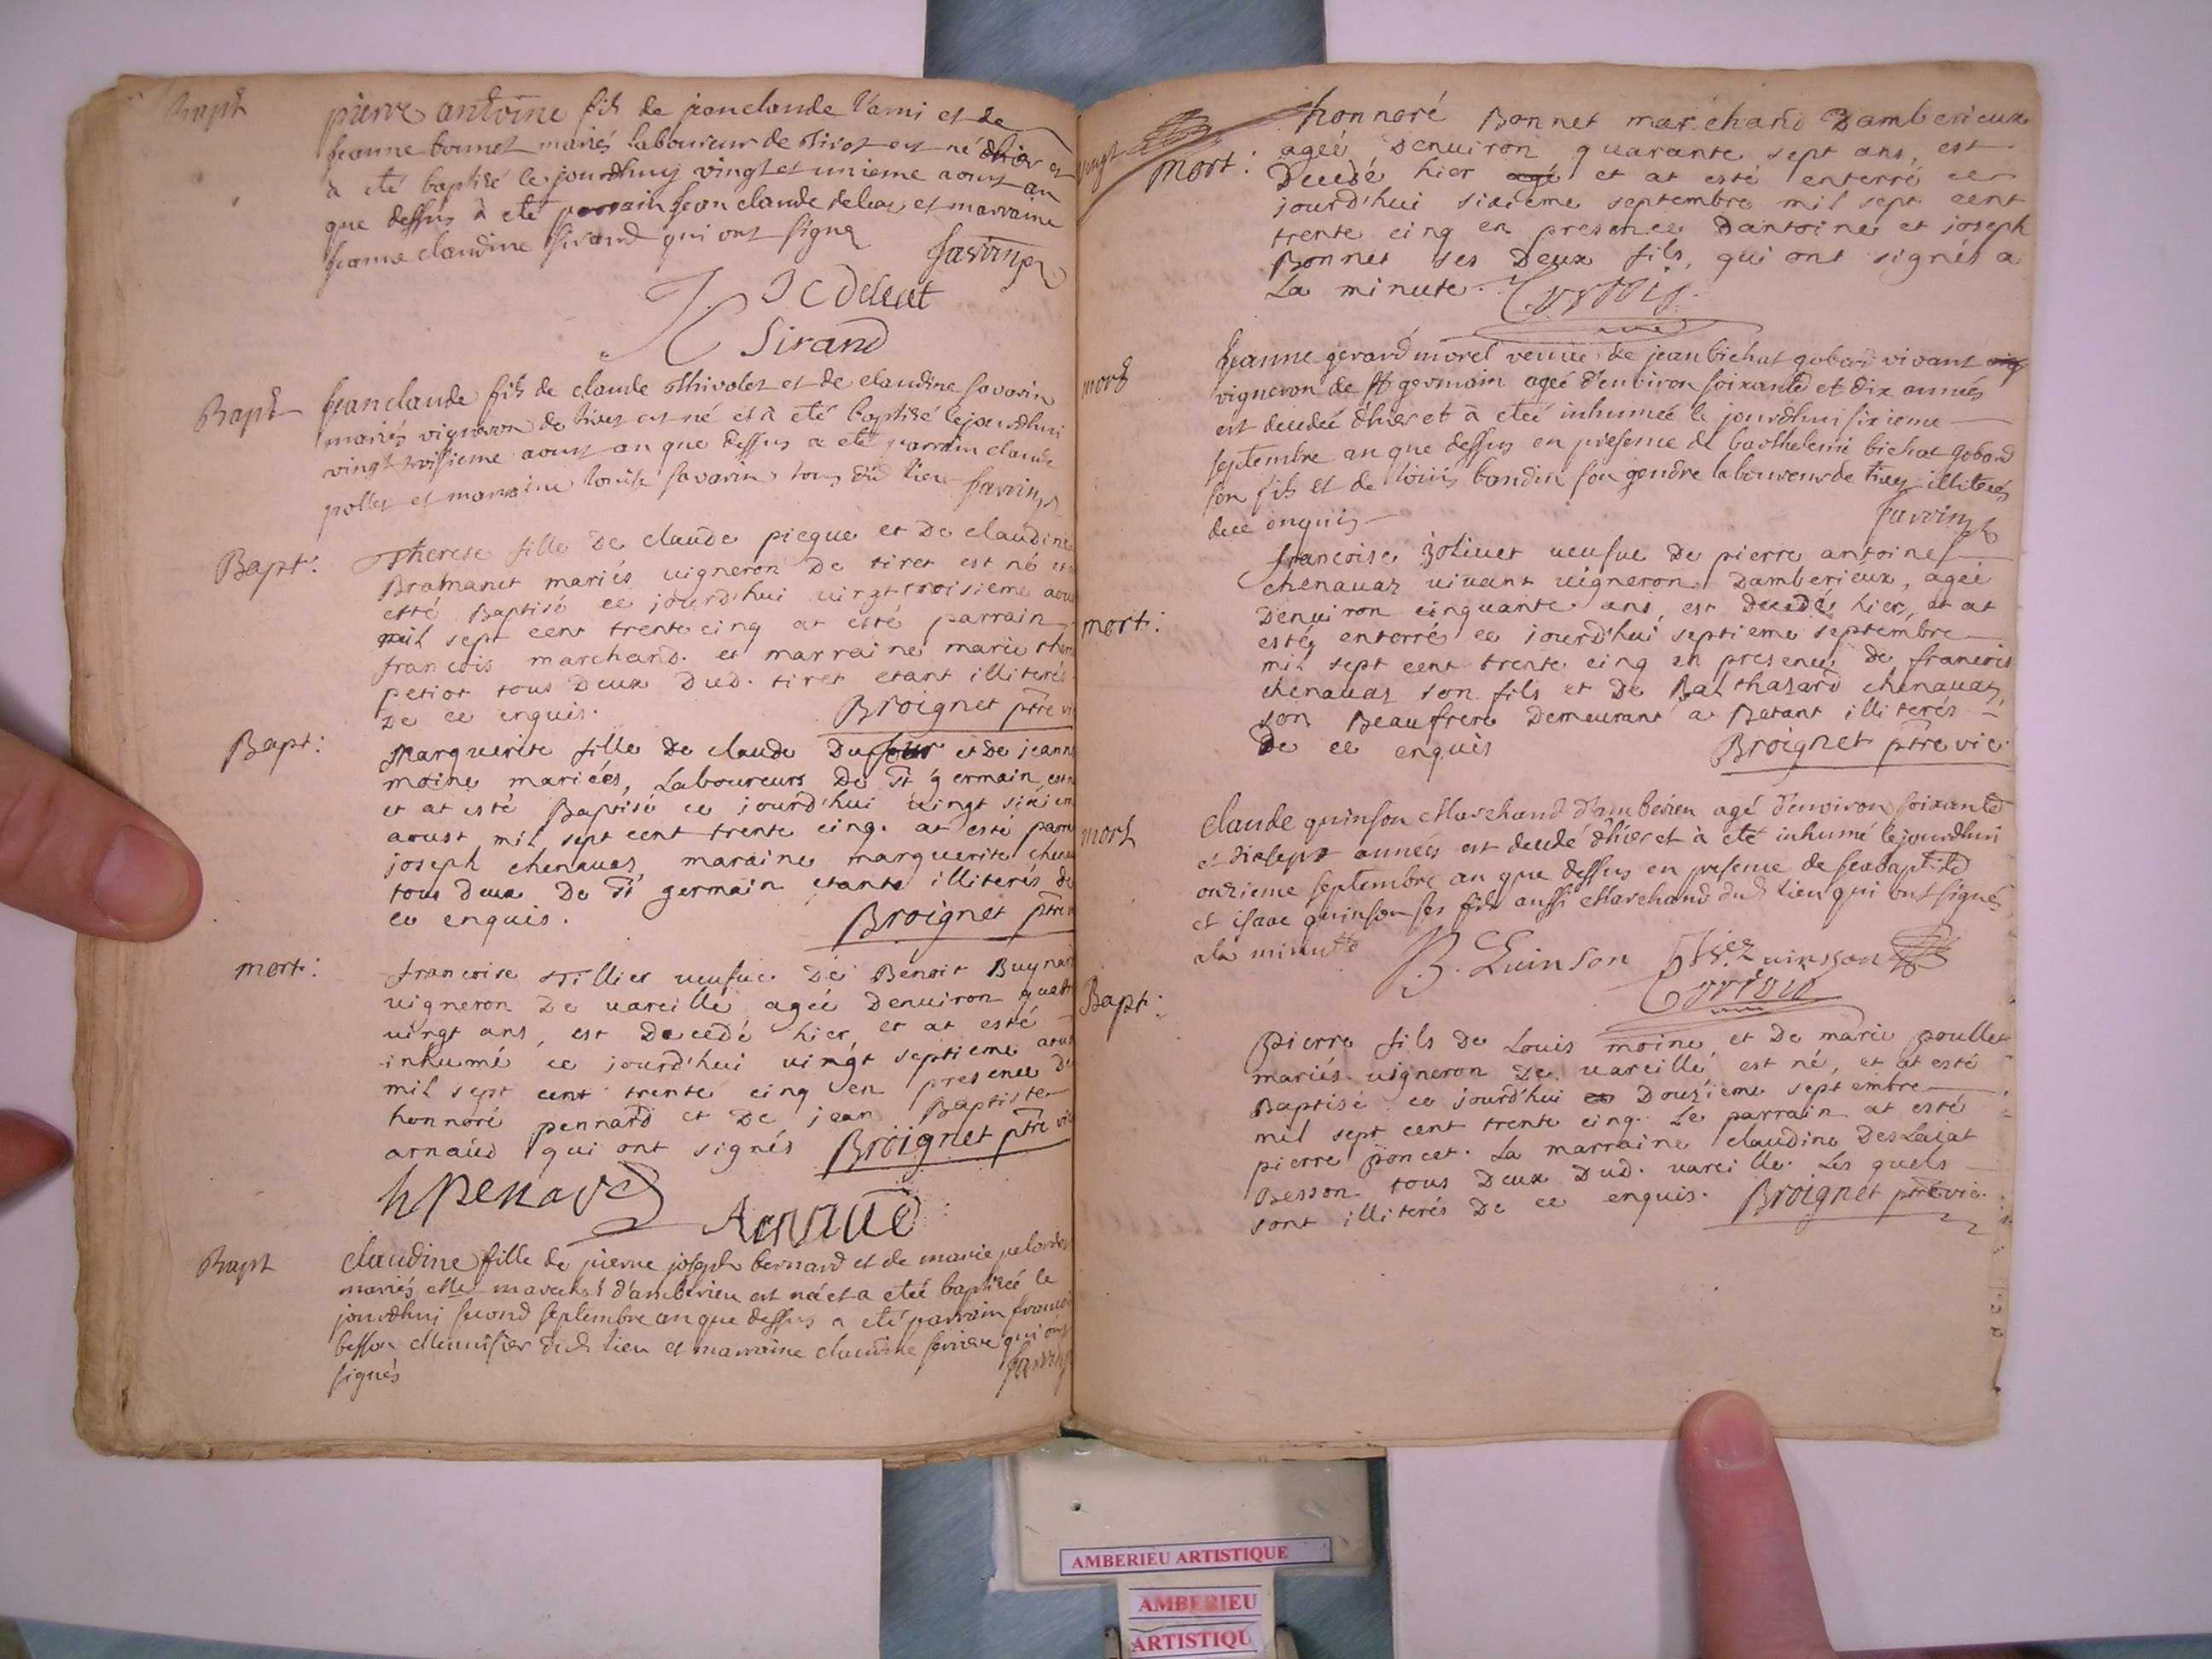 Bapt
pierre antoine fils de jean claude Vami et de
jeanne bonnet mariés laboureur de Tiret est né d'hier et
à eté baptisé le jourdhuy vingt et unieme aoust an
que dessus à eté parrain jean claude deleat et marraine
jeanne claudine Sirand qui ont signé
J C Deleat
Sirand
Bapt
jean claude fils de claude Thivolet et de claudine savarin
mariés vigneron de tiret est né et à eté baptisé le jourdhui
vingt troisieme aoust an que dessus a eté parrain claude
pollet et marraine louise savarin tous dud lieu
Bapt:
Therese fille De claude picque et De claudine
Bramanet mariés vigneron De tiret est né et
esté Baptisé ce jourd'hui vingt troisieme aou
mil sept cent trente cinq at esté parrain
francois marchand. et marraine marie ther
petiot tous Deux Dud. tiret etant illiterés
De ce enquis. Broignet ptre vi
Bapt:
Marguerite fille De claude Dufour et De jeann
moine mariées, Laboureurs De St germain est n
et at esté Baptisé ce jourd'hui vingt sixiem
aoust mil sept cent trente cinq. at esté parr
joseph chenavaz, maraine marguerite chena
tous Deux De St germain etants illiterés de
ce enquis. Broignet ptre v
mort:
francoise Tillier veufue De Benoit Buynan
vigneron De vareille agée Denuiron quatr
vingt ans, est Decedé hier, et at esté
inhumé ce jourd'hui vingt septieme aous
mil sept cent trente cinq en presence De
honnoré pennard et De jean Baptiste
arnaud qui ont signés Broignet ptre vic
h penard
Arnaud
Bapt
claudine fille de pierre joseph bernard et de marie
mariés d'amberieu est née et a eté baptisée le
jourdhuy second septembre an que dessus a eté parrain francoi
besson Menuisier dud lieu et marraine claudine ferriere qui ont
signés
vingt
mort:
honnoré Bonnet marchand Damberieux
agée Denuiron quarante sept ans, est
Decedé hier agé et at esté enterré ce
jourd'hui sixieme septembre mil sept cent
trente cinq en presence Dantoine et joseph
Bonnet ses Deux fils, qui ont signés a
La minute.
mort
jeanne gerard morel veuve de jean bichat gobard vivant
vigneron de St germain agée d'environ soixante et dix années
est decedée d'hier et à eteé inhumée le jourdhui sixieme
septembre an que dessus en presence de barthelemi bichat gobard
son fils et de louis baudin son gendre laboureurs de tirey illiterés
dece enquis
mort:
francoise Joliuet ueufue De pierre antoine
chenauaz uiuant uigneron Damberieux, agée
Denuiron cinquante ans, est Decedés hier, et at
esté enterré ce jourd'hui septieme septembre
mil sept cent trente cinq en presence De francois
chenauaz son fils et De Balthasard chenauaz
son Beaufrere Demeurant a Betant illiterés
De ce enquis Broignet ptre vic
mort
Claude quinson Marchand d'amberieu agé d'environ soixante
et dixsept années est decedé d'hier et à eté inhumé le jourdhui
onzieme septembre an que dessus en presence de jeanbaptiste
et isaac quinson ses fils aussi Marchand dud lieu qui ont signés
ala minutte
B. Quinson
Bapt:
pierre fils De Louis moine et De marie poullet
mariés vigneron De vareille est né, et at esté
Baptisé ce jourd'hui Douzieme septembre
mil sept cent trente cinq. Le parrain at esté
pierre poncet. La marraine claudine Deslaiat
Besson tous Deux Dud. vareille. Les quels
sont illiterés De ce enquis. Broignet ptre vic.
AMBERIEU ARTISTIQUE
AMBERIEU
ARTISTIQU